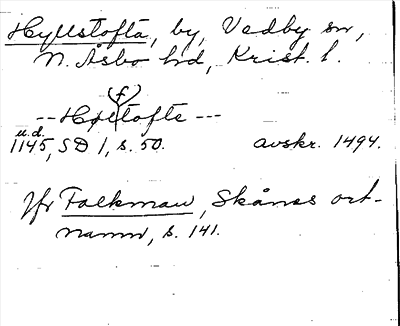 Hyllstofta, by, Vedby sn,
N. Åsbo hd, Krist. l.
(f)
-- Hyltofte ---
u.d.
1145, SD 1, s. 50. avskr. 1494.
Jfr Falkman, Skånes ort-
namn, s. 141.